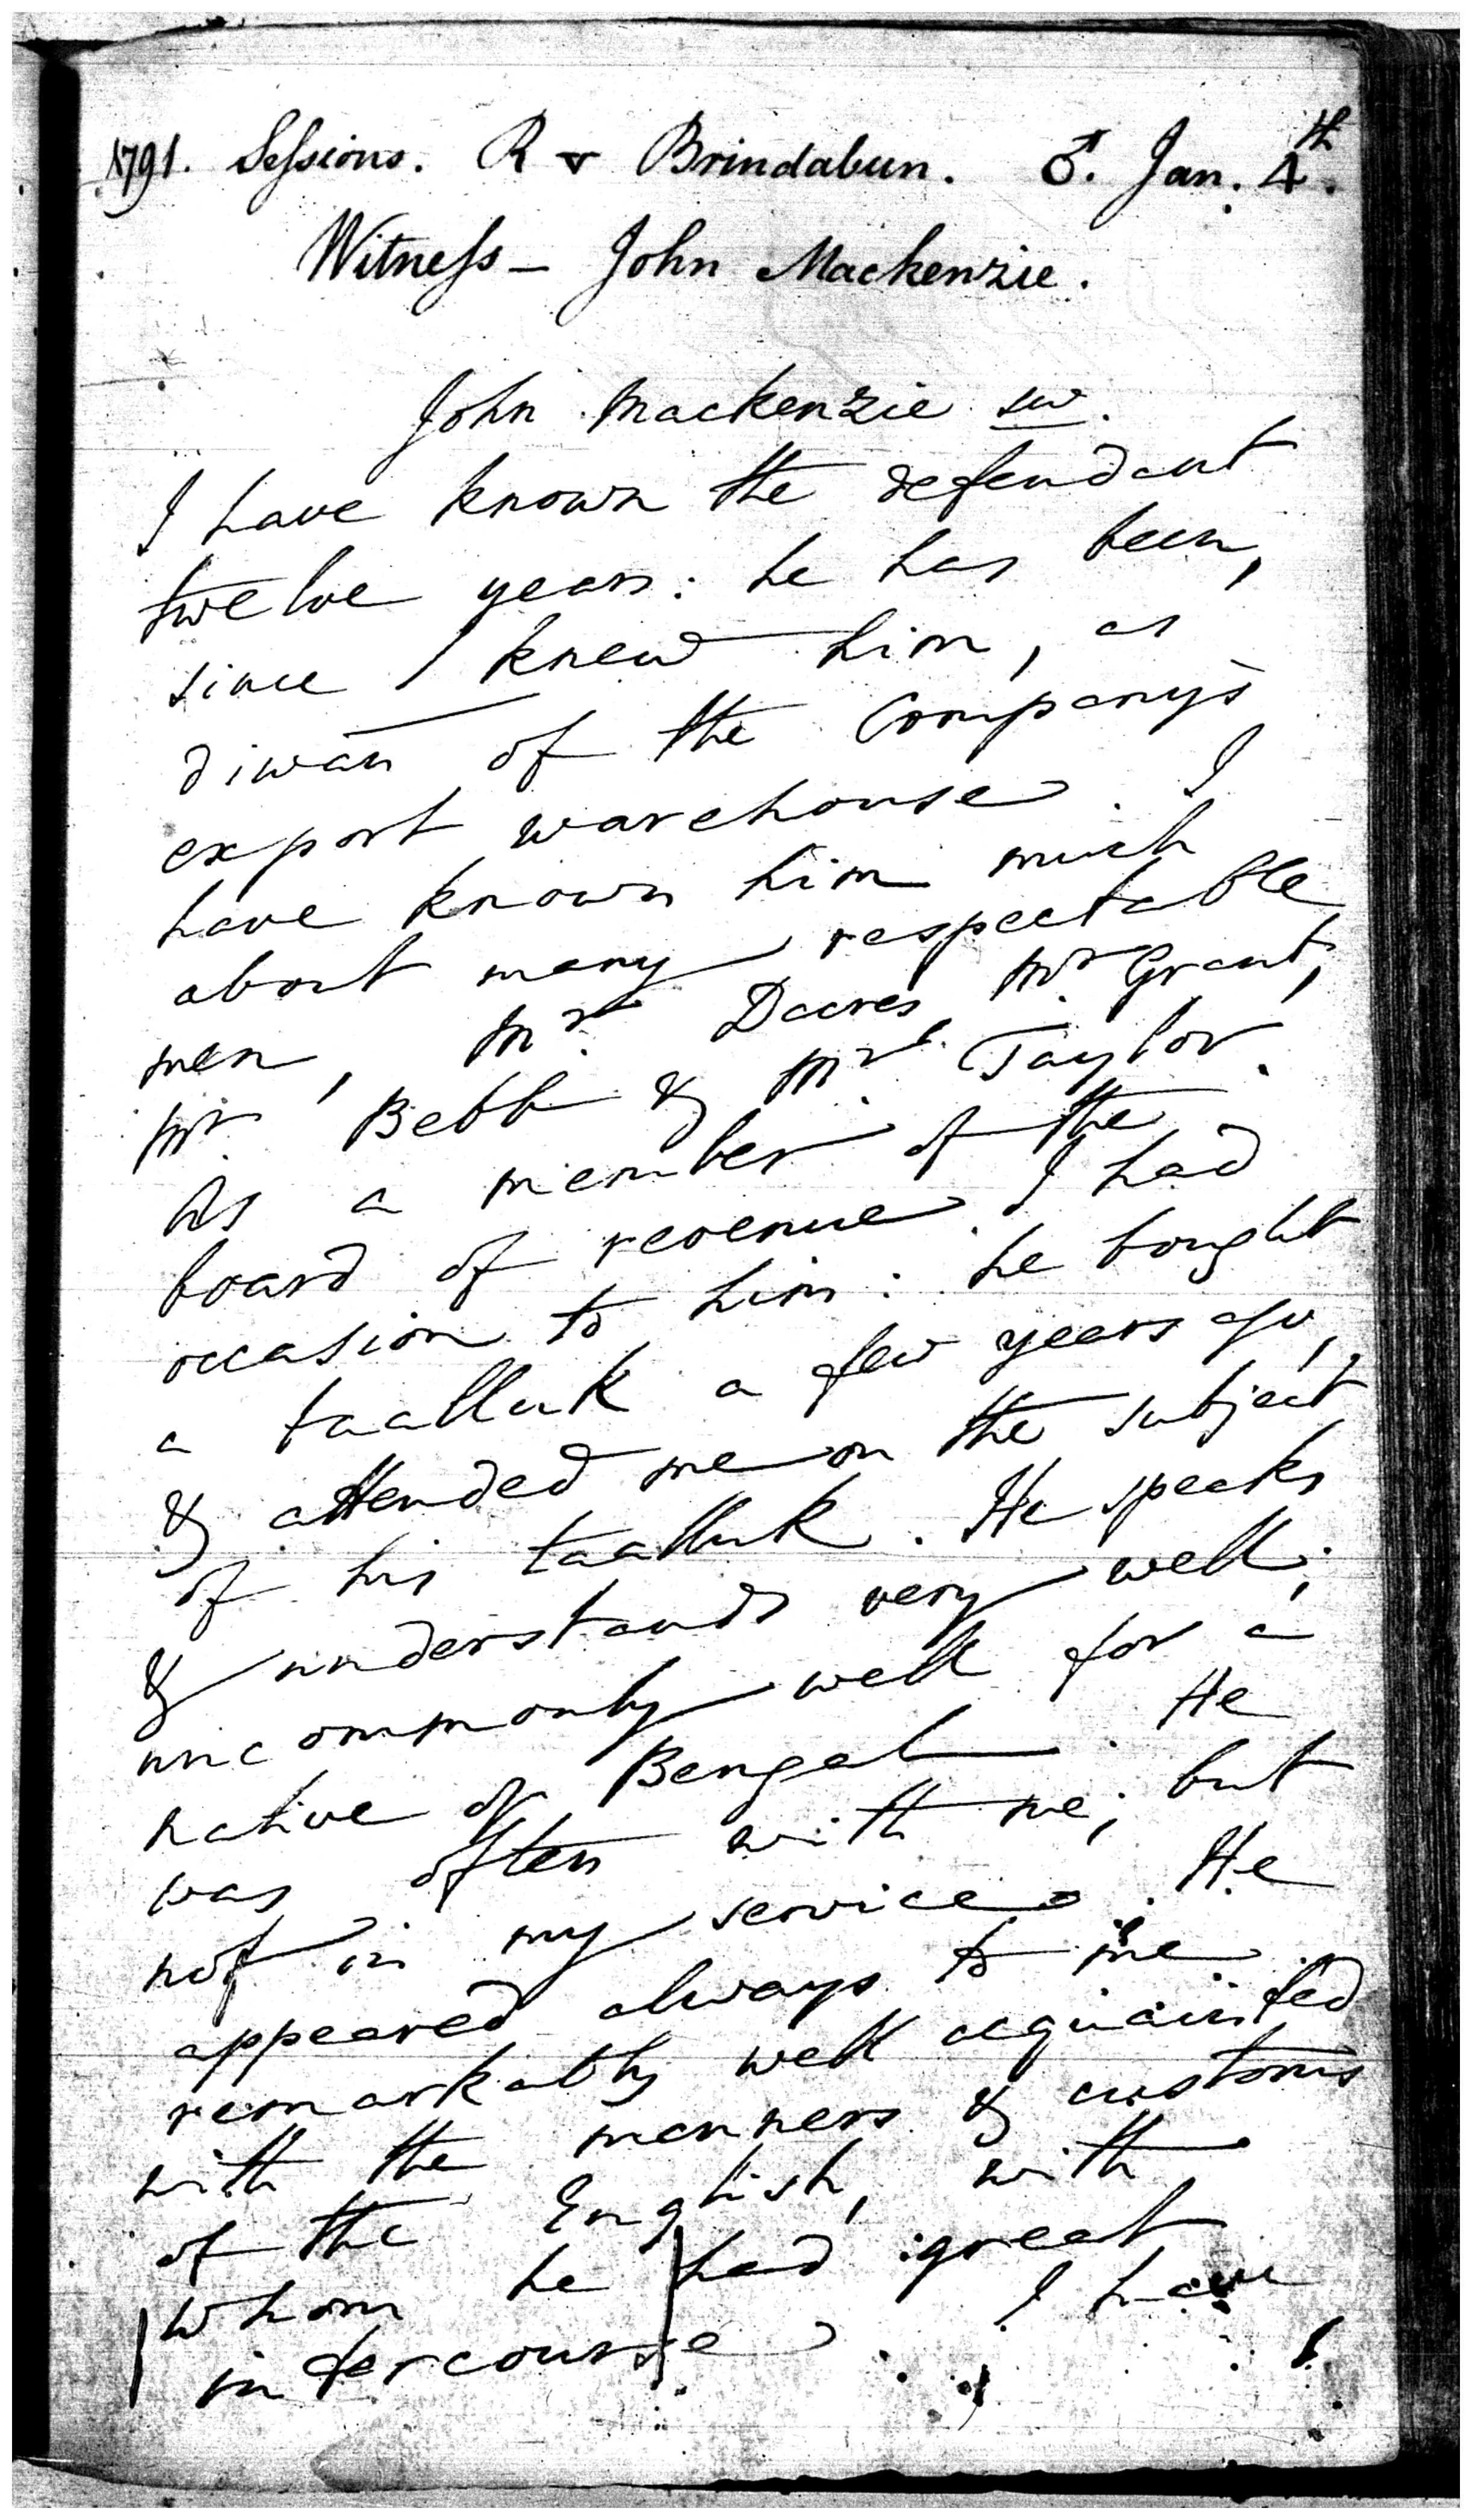 1791. Sessions. R v Brindabun. ♂. Jan. 4th.
Witness – John Mackenzie.
John Mackenzie sw.
I have known the defendant
twelve years: he has been,
since I knew him, as
diwàn of the Company's
export warehouse. I
have known him much
about many respectable
men, Mr. Dacres, Mr. Grant,
Mr. Bebb & Mr. Taylor.
As a member of the
board of revenue I had
occasion to him: he bought
a taalluk a few years ago,
& attended me on the subject
of his taalluk. He speaks
& understands very well;
uncommonly well for a
native of Bengal. He
was often with me; but
not in my service. He
appeared always to me
remarkably well acquainted
with the manners & customs
of the English, with
whom he had great
intercourse. I have